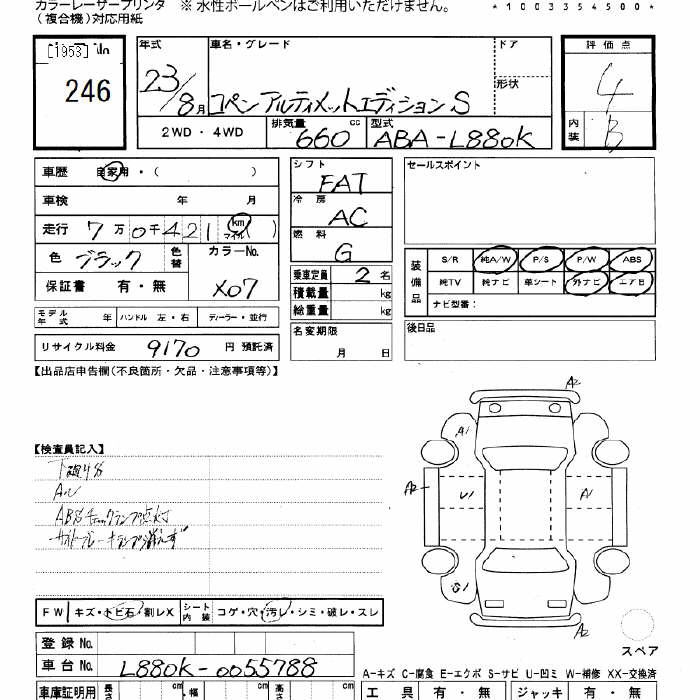 カラーレーザープリンタ ※ 水性ボールペンはご利用いただけません。 *1003354500*
(複合機)対応用紙
[1953]
246
年式 車名・グレード ドア 評価点
23/8月 コペン アルティメットエディションS 形状 4
2WD・4WD 排気量 660 cc 型式 ABA-L880K 内装 B
車歴 自家用・( )
車検 年 月
走行 7万0千421 km マイル ( )
色 ブラック 色替 カラーNo. X07
保証書 有・無
モデル年式 年 ハンドル 左・右 ディーラー・並行
リサイクル料金 9170 円 預託済
シフト FAT
冷房 AC
燃料 G
乗車定員 2 名
積載量 kg
総重量 kg
名変期限 月 日
セールスポイント
装備品 S/R 純A/W P/S P/W ABS
純TV 純ナビ 革シート 外ナビ エアB
ナビ型番:
後日品
【出品店申告欄(不良箇所・欠品・注意事項等)】
【検査員記入】
下廻りS
ABSチェックランプ点灯
サイドブレーキランプ消えず
A2
A1
A2 U1 A1
A2
FW キズ・トビ石・割レX シート内装 コゲ・穴・汚レ・シミ・破レ・スレ
スペア
登録No.
車台No. L880K-0055788
A-キズ C-腐食 E-エクボ S-サビ U-凹ミ W-補修 XX-交換済
車庫証明用 長さ cm 幅 cm 高さ cm 工具 有・無 ジャッキ 有・無